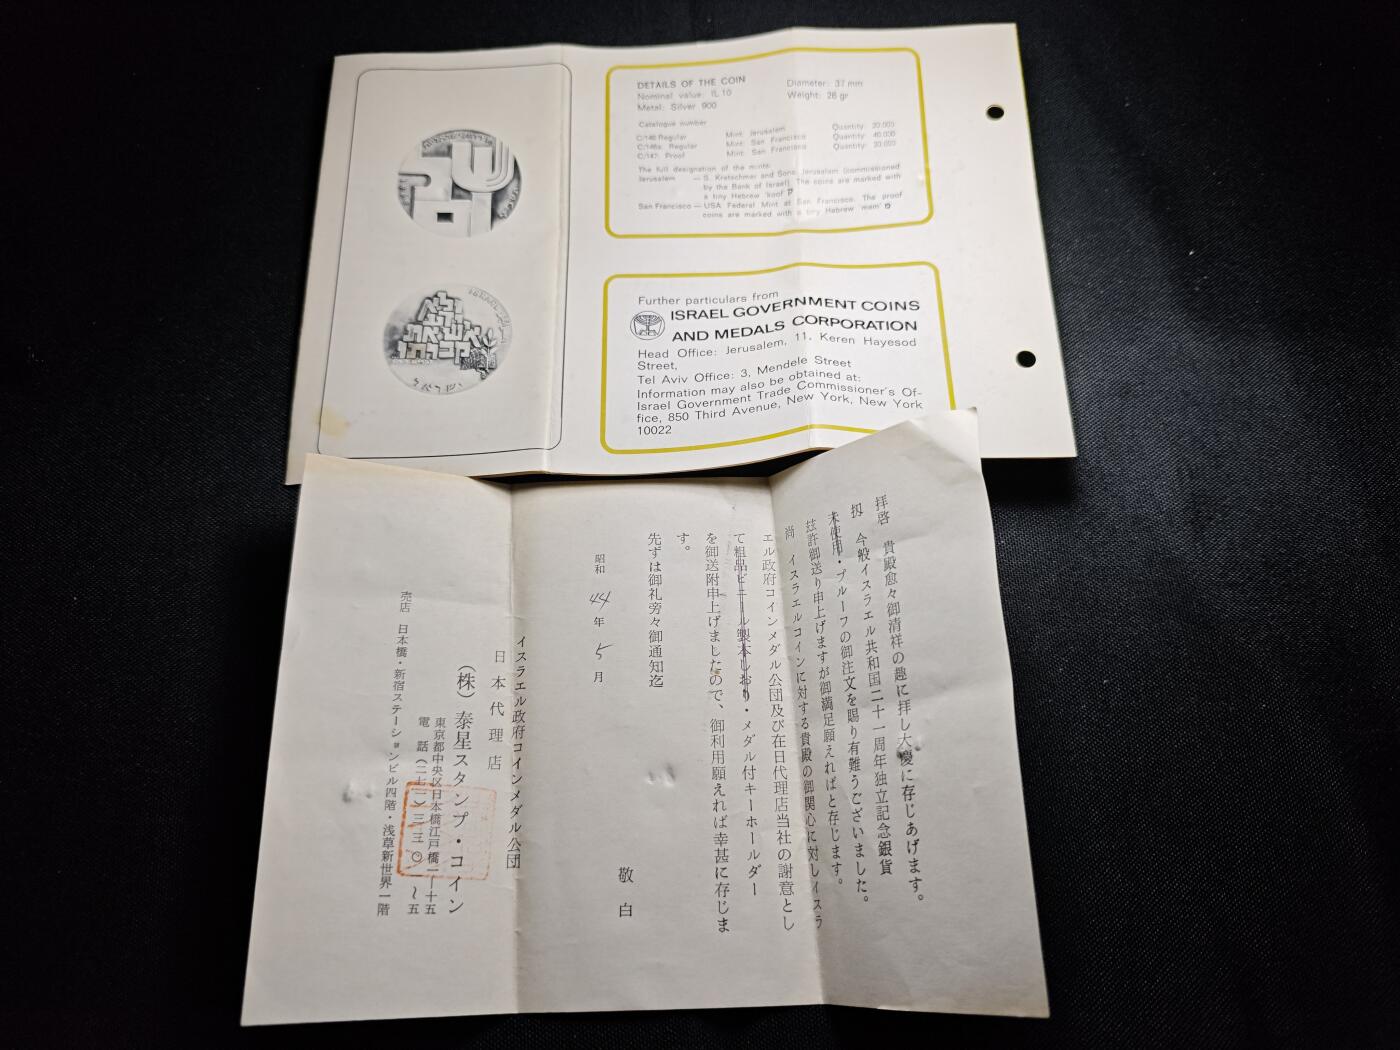 DETAILS OF THE COIN
Nominal value: IL 10
Metal: Silver 900
Diameter: 37 mm
Weight: 26 gr
Catalogue number
C/146 Regular Mint: Jerusalem Quantity: 20.000
C/146a: Regular Mint: San Francisco Quantity: 40.000
C/147: Proof Mint: San Francisco Quantity: 20.000
The full designation of the mints:
Jerusalem — S. Kretschmer and Sons, Jerusalem (commissioned
by the Bank of Israel). The coins are marked with
a tiny Hebrew 'koof' ק
San Francisco — USA Federal Mint at San Francisco. The proof
coins are marked with a tiny Hebrew 'mem' מ
Further particulars from
ISRAEL GOVERNMENT COINS
AND MEDALS CORPORATION
Head Office: Jerusalem, 11, Keren Hayesod
Street,
Tel Aviv Office: 3, Mendele Street
Information may also be obtained at:
Israel Government Trade Commissioner's Of-
fice, 850 Third Avenue, New York, New York
10022
שלום
ISRAEL
ולא
ישא
ישראל
拝啓 貴殿愈々御清祥の趣に拝し大慶に存じあげます。
扨 今般イスラエル共和国二十一周年独立記念銀貨
未使用・プルーフの御注文を賜り有難うございました。
玆許御送り申上げますが御満足願えればと存じます。
尚 イスラエルコインに対する貴殿の御関心に対しイスラ
エル政府コインメダル公団及び在日代理店当社の謝意とし
て粗品ビニール製本しおり・メダル付キーホールダー
を御送附申上げましたので、御利用願えれば幸甚に存じま
す。
先ずは御礼旁々御通知迄
敬白
昭和 44 年 5 月
イスラエル政府コインメダル公団
日本代理店
(株)泰星スタンプ・コイン
東京都中央区日本橋江戸橋一ー十五
電話(二七一)三三〇一〜五
売店 日本橋・新宿ステーションビル四階・浅草新世界一階